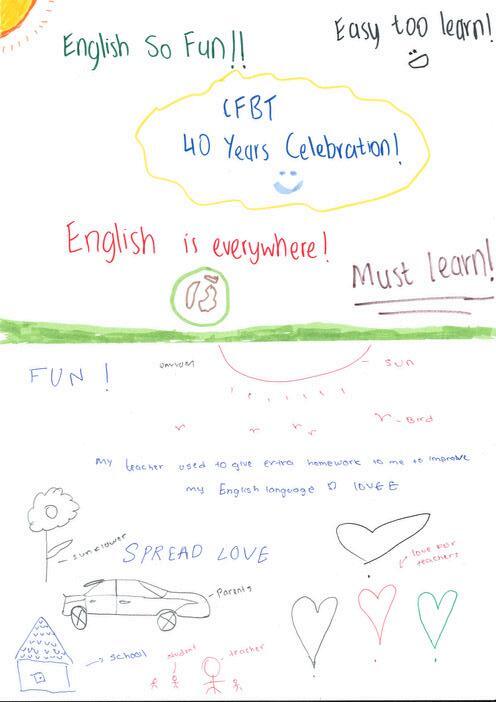 Easy too learn!
English So Fun!!
CFBT
40 Years Celebration!
English is everywhere!
Must learn!
FUN !
Sun
Bird
My teacher used to give extra homework to me to improve
my English language LOVEE
sunflower
SPREAD LOVE
love for
teachers
Parents
School
student
teacher